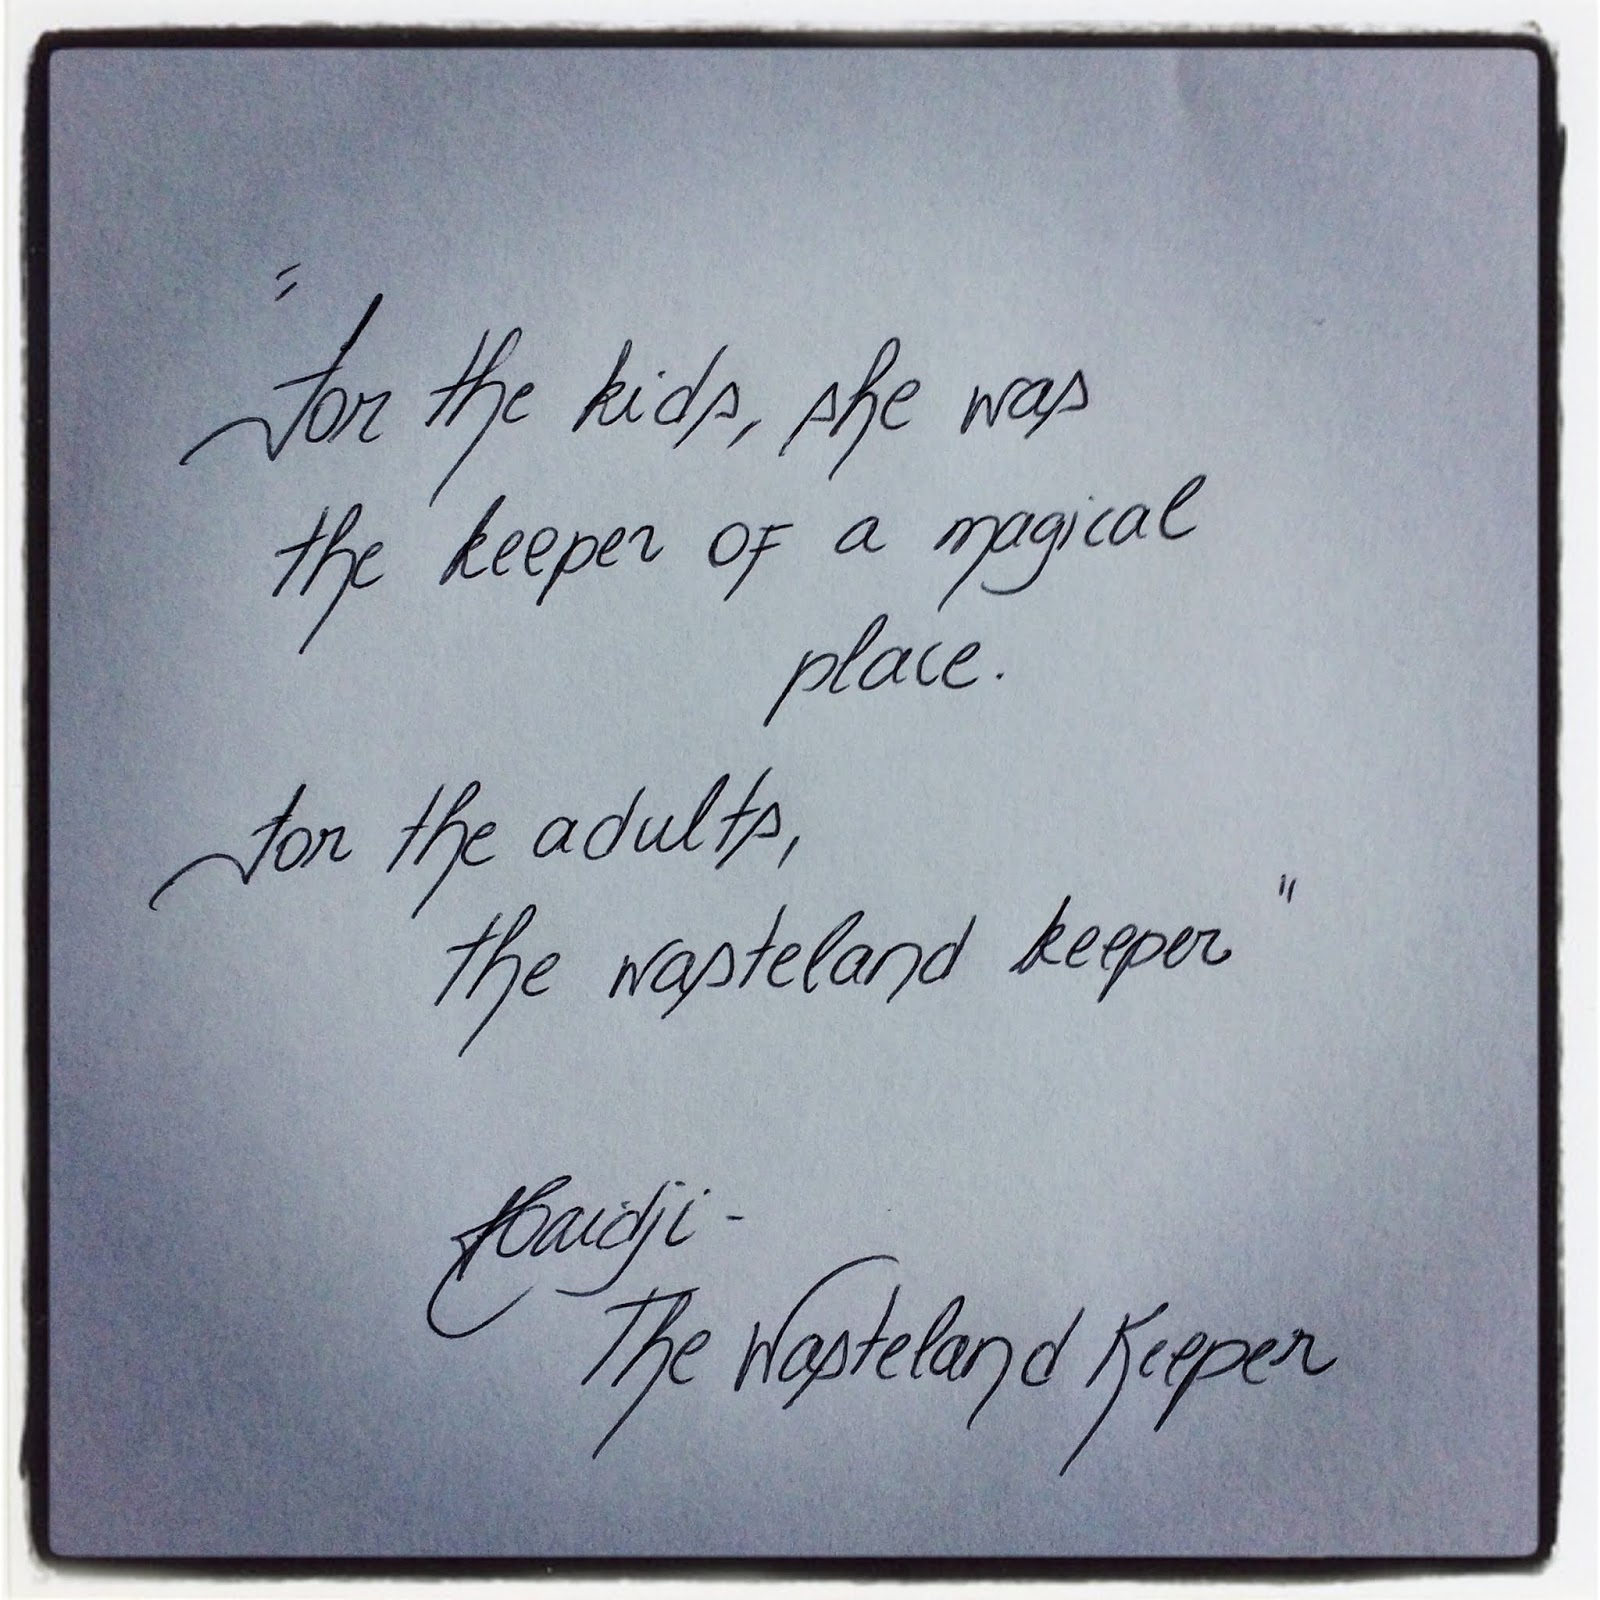 "For the kids, she was
the keeper of a magical
place.
For the adults,
the wasteland keeper"
Haidji -
The Wasteland Keeper